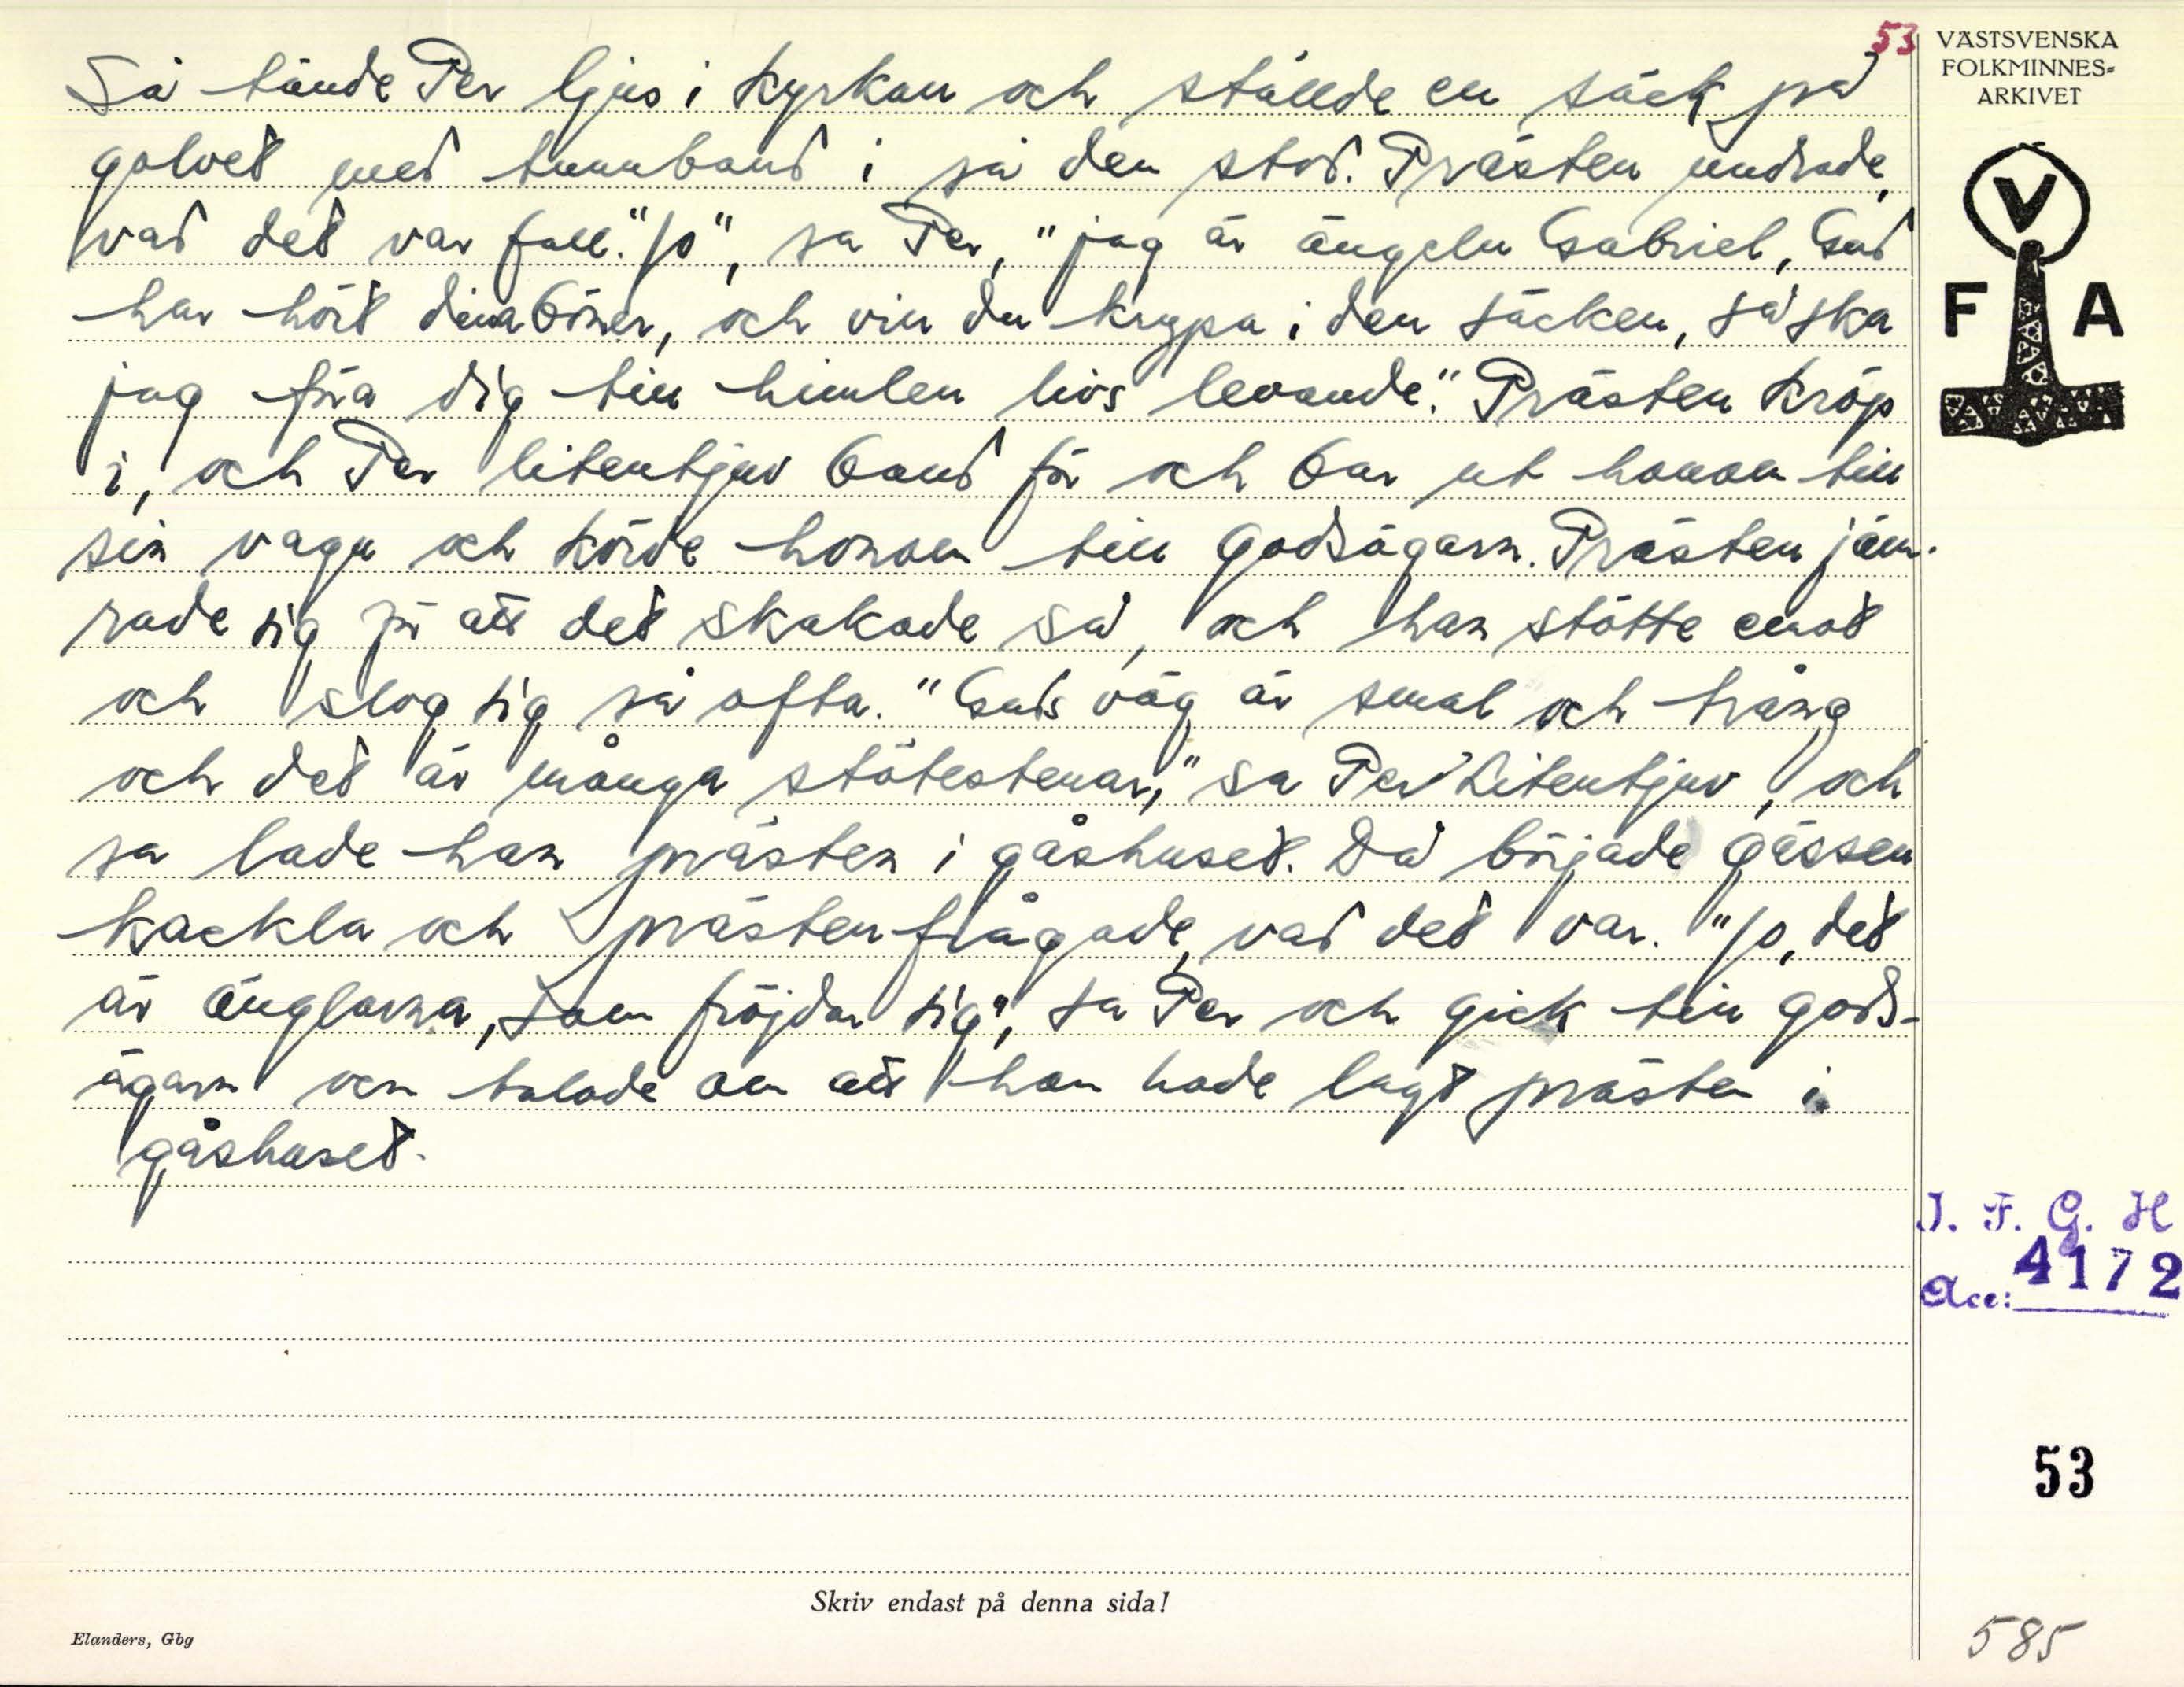 53
VÄSTSVENSKA
FOLKMINNES-
ARKIVET
V
F A
Så tände Per ljus i kyrkan och ställde en säck på
golvet med tunnband i så den stod. Prästen undrade,
vad det var för. "Jo", sa Per, "jag är ängeln Gabriel, Gud
har hört dina böner, och vill du krypa i den säcken, så ska
jag föra dig till himlen livs levande." Prästen kröp
i, och Per litentjuv band för och bar ut honom till
sin vagn och körde honom till godsägarn. Prästen jäm-
rade sig för att det skakade så, och han stötte emot
och slog sig så ofta. "Guds väg är smal och trång
och det är många stötestenar," sa Per Litentjuv, och
sa lade han prästen i gåshuset. Då började gässen
kackla och prästen frågade, vad det var. "Jo, det
är änglarna, som fröjdar sig", sa Per och gick till gods-
ägarn ocn talade om att han hade lagt prästen i
gåshuset.
J. F. G. H
Acc: 4172
53
Skriv endast på denna sida!
Elanders, Gbg
585